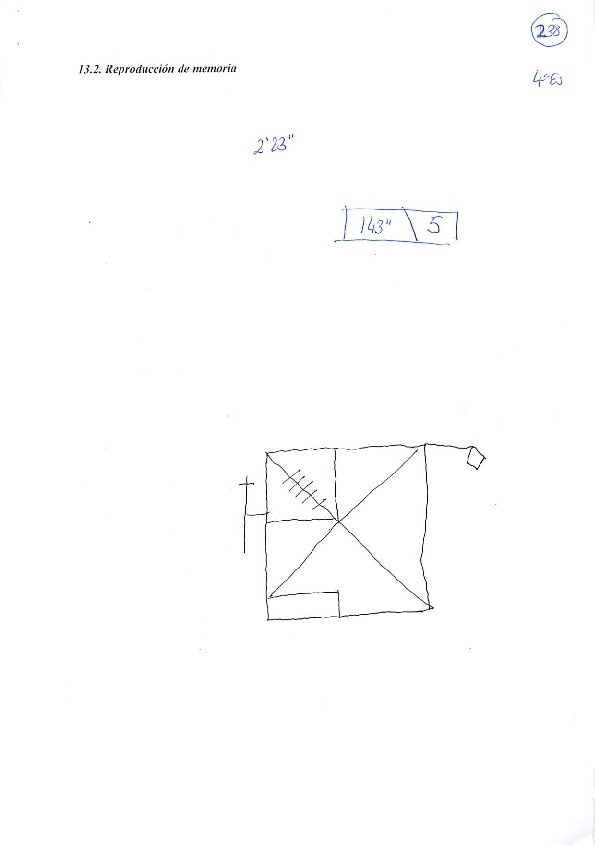 238
13.2. Reproducción de memoria
4º ES
2'23"
143" \ 5